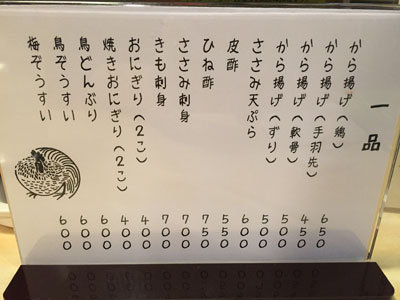 一品
から揚げ(鶏) 650
から揚げ(手羽先) 450
から揚げ(軟骨) 500
から揚げ(ずり) 500
ささみ天ぷら 600
皮酢 550
ひね酢 750
ささみ刺身 700
きも刺身 700
おにぎり(2こ) 400
焼きおにぎり(2こ) 400
鳥どんぶり 600
鳥ぞうすい 600
梅ぞうすい 600